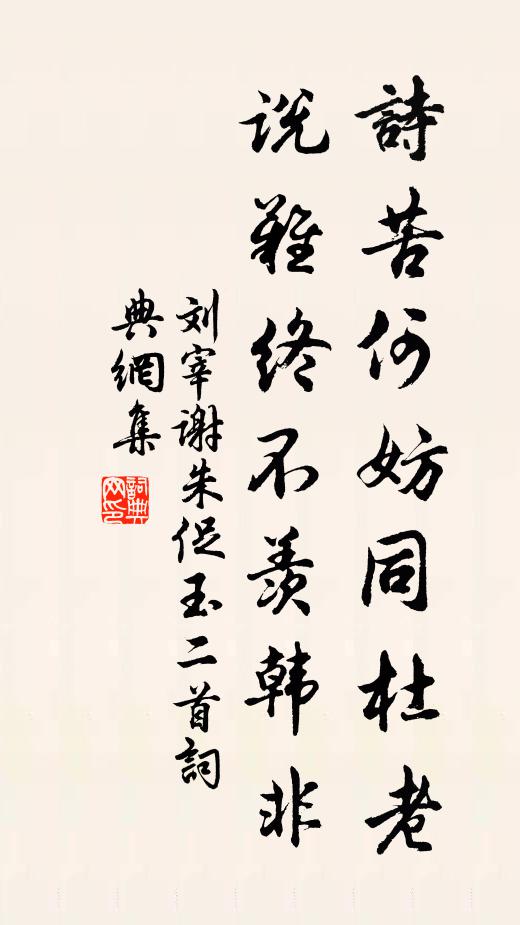 詩苦何妨同杜老
说難终不羨韩非
刘宰谢朱伲玉二首詞
典網集
詞典
网印